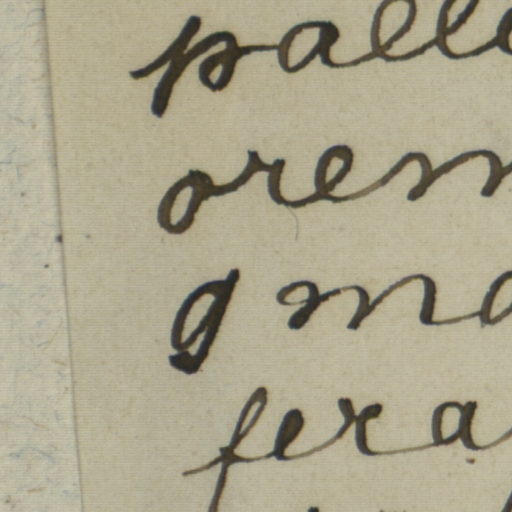 pall
orem
g ma
fera